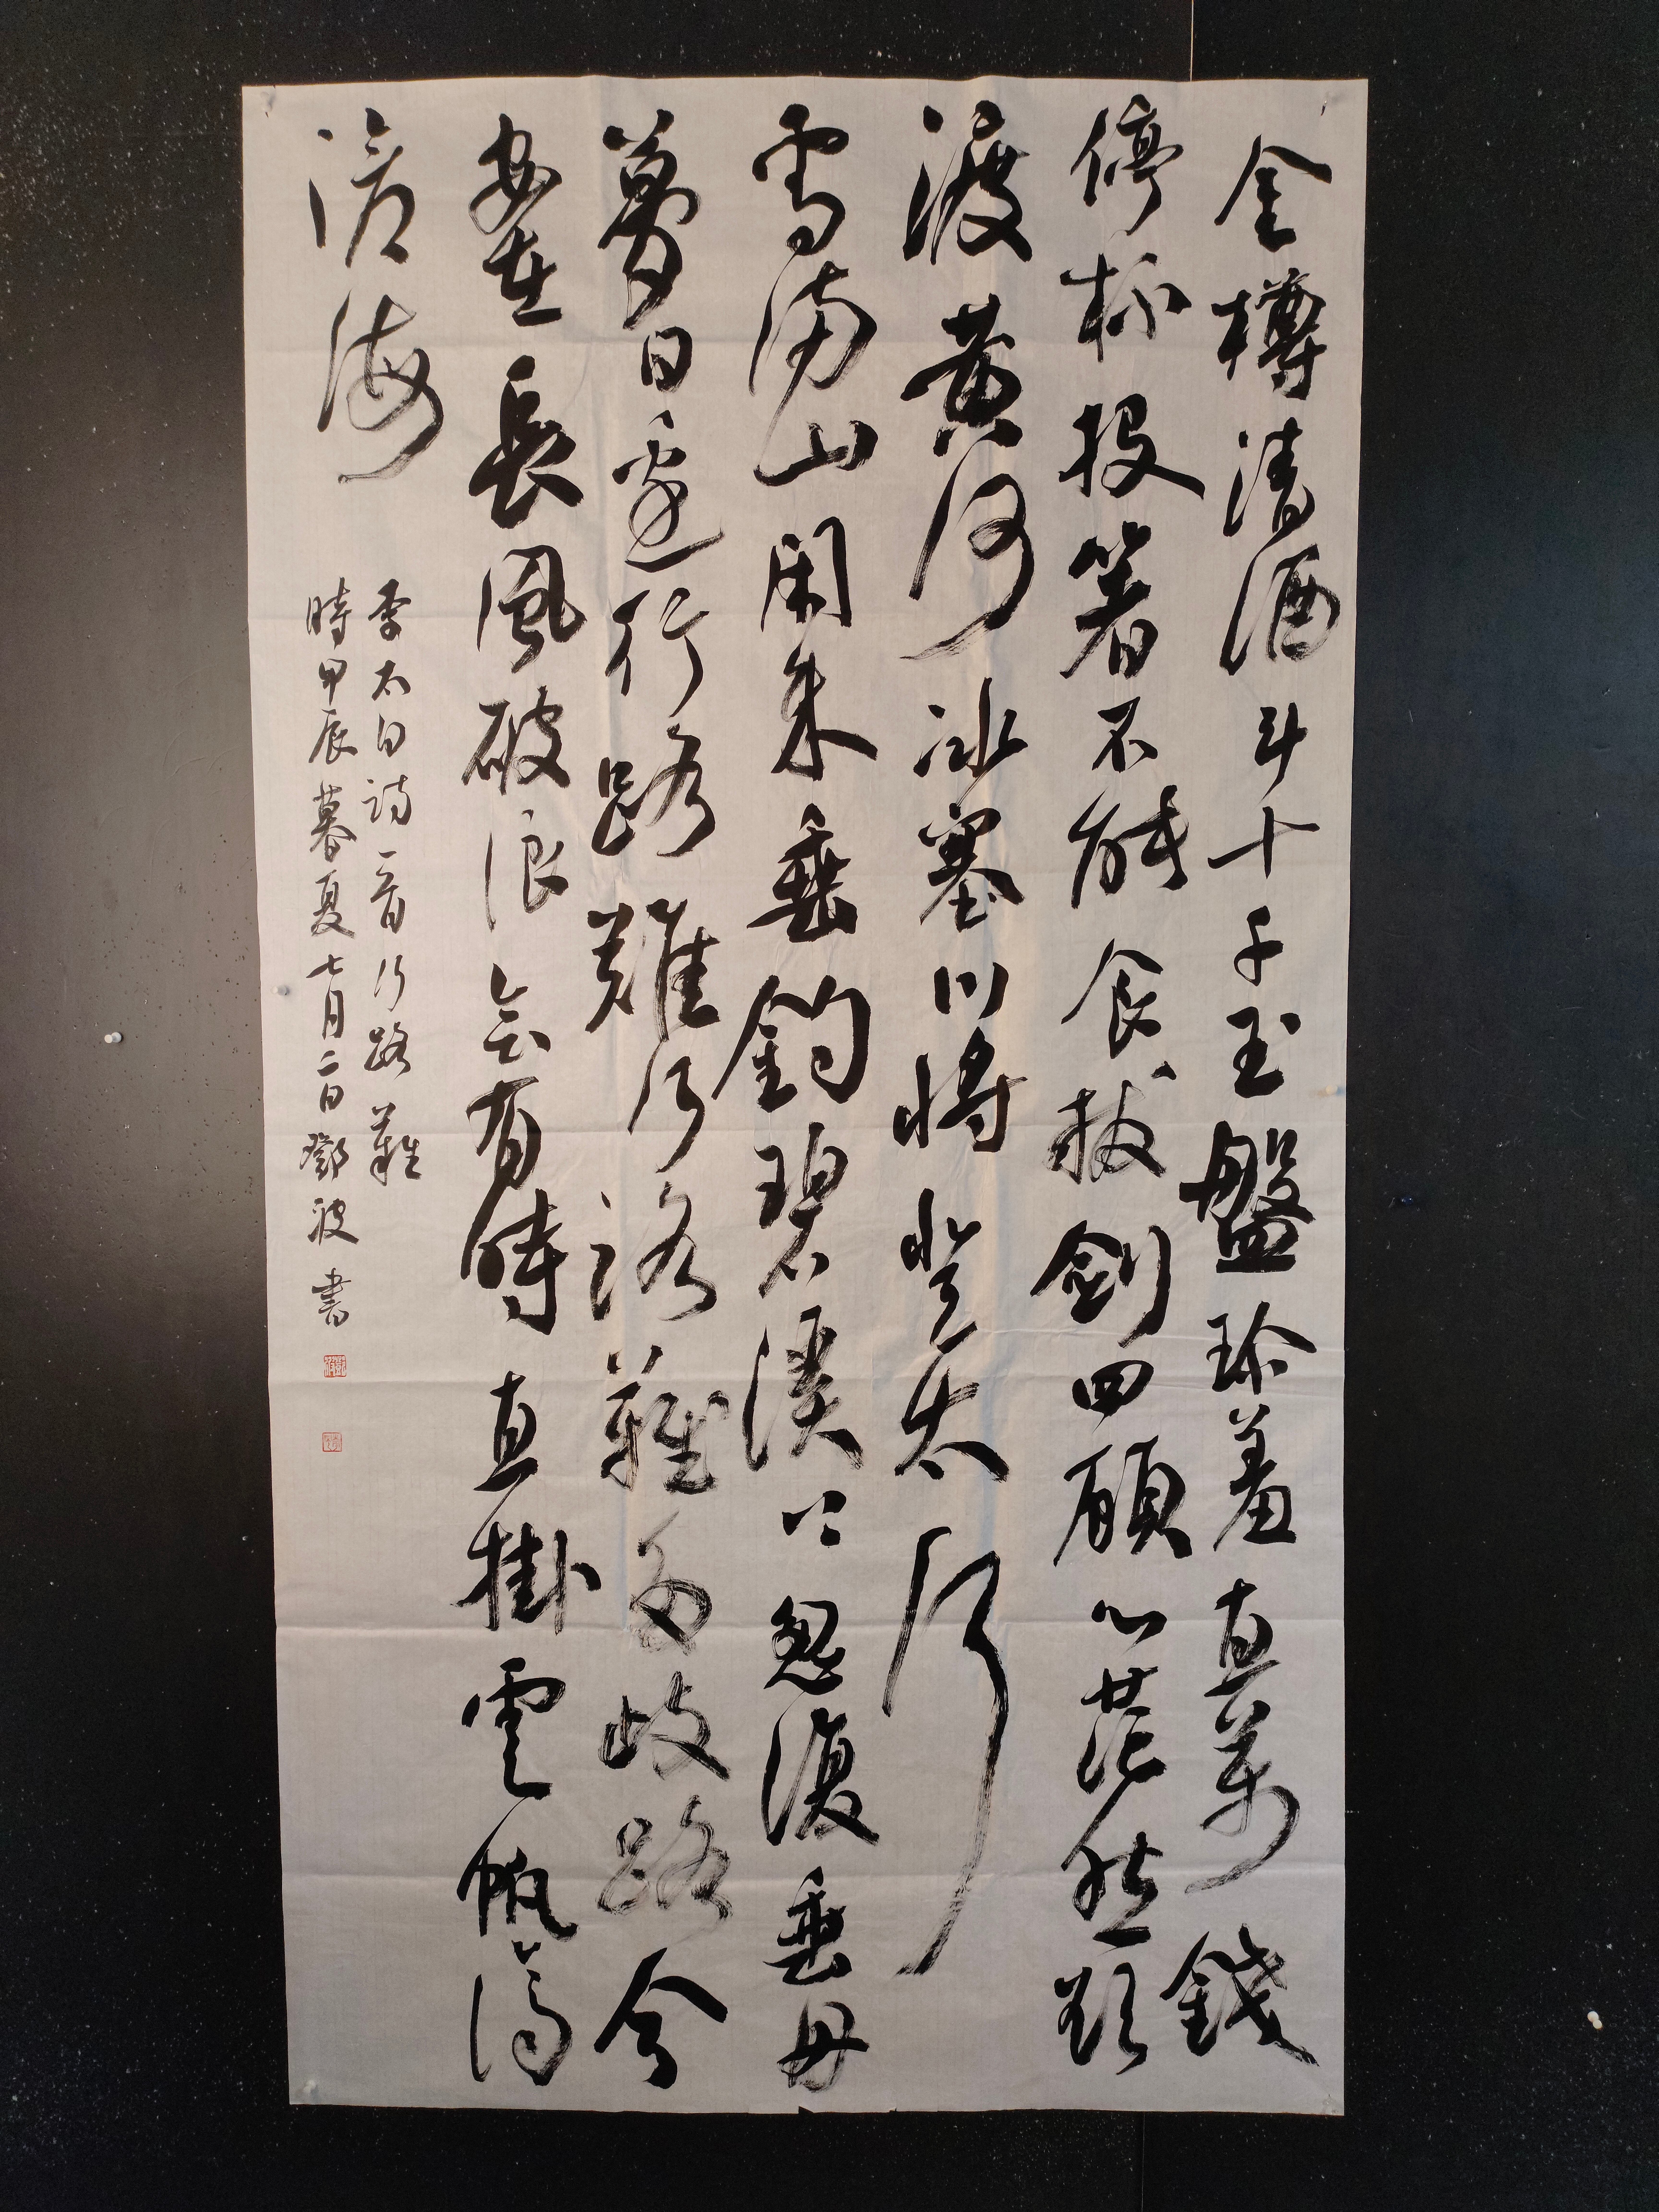 金樽清酒斗十千玉盤珍羞直萬錢
停杯投箸不能食拔劍四顧心茫然欲
渡黄河冰塞川將登太行
雪滿山閑來垂釣碧溪上忽復乘舟
夢日邊行路難行路難多歧路今
安在長風破浪會有時直掛雲帆濟
滄海
李太白詩一首行路難
時甲辰暮夏七月二日鄧波書